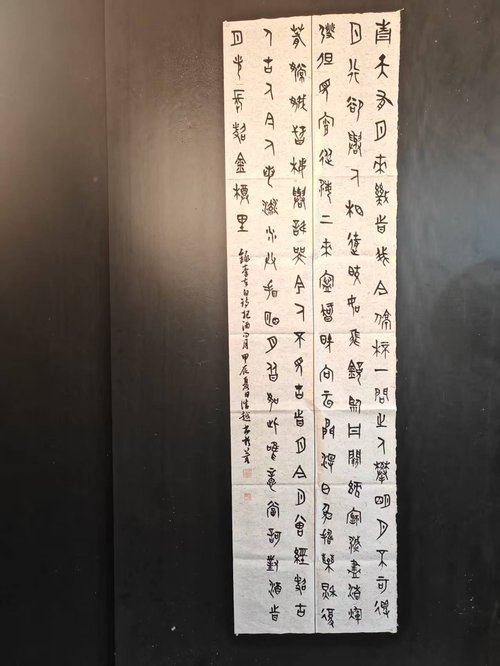 青天有月來幾時我今停杯一問之人攀明月不可得
月行卻與人相隨皎如飛鏡臨丹闕綠煙滅盡清輝
發但見宵從海上來寧知曉向雲間沒白兔搗藥秋復
春嫦娥孤棲與誰鄰今人不見古時月今月曾經照古
人古人今人若流水共看明月皆如此唯願當歌對酒時
月光長照金樽里
錄李太白詩把酒問月甲辰夏日